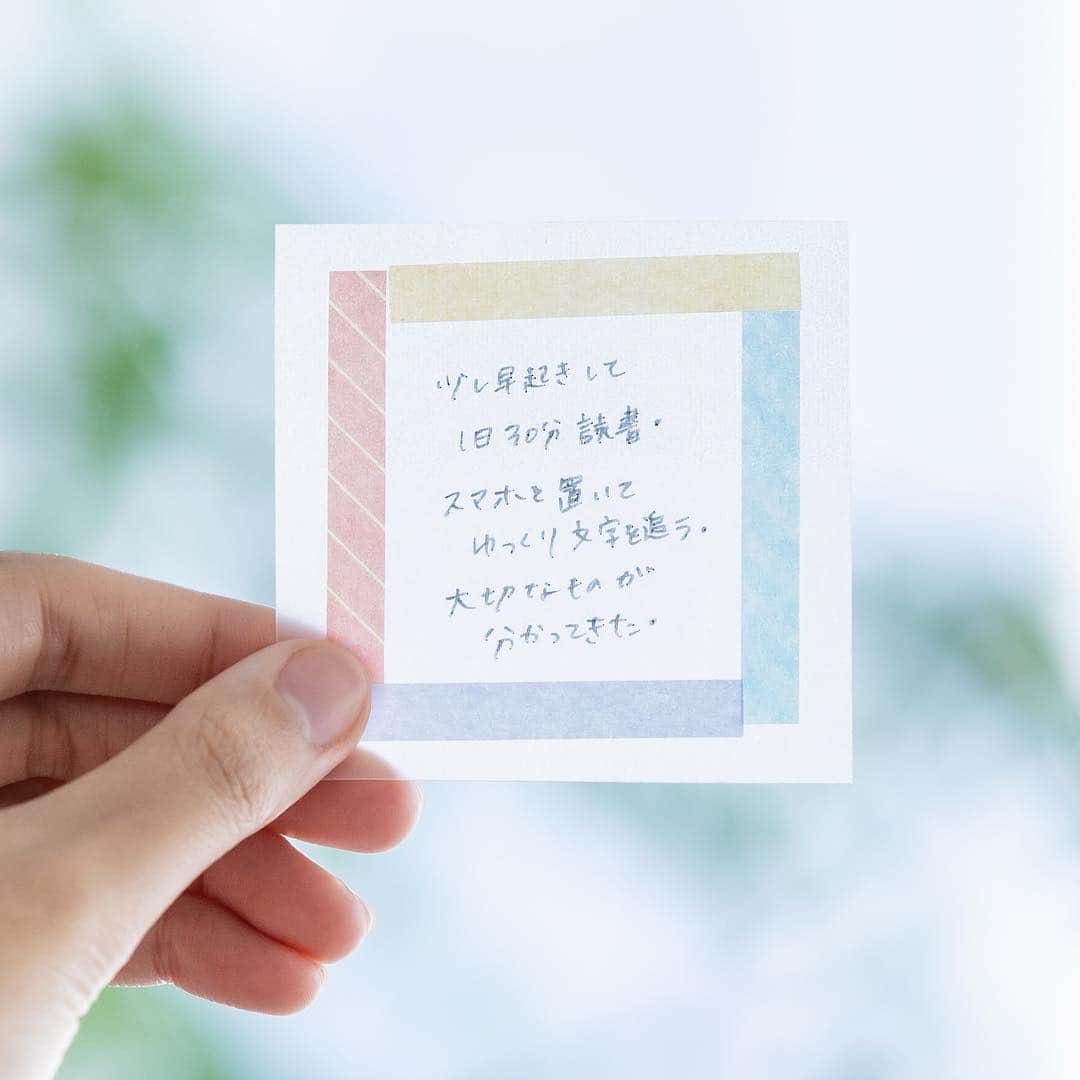 少し早起きして
1日30分読書.
スマホを置いて
ゆっくり文字を追う.
大切なものが
分かってきた.